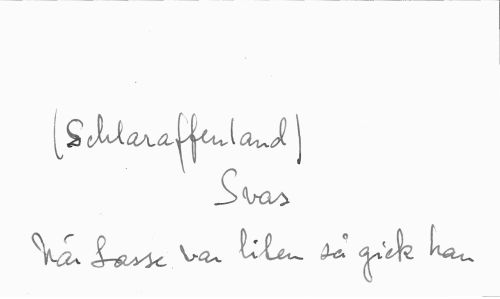 (Schlaraffenland)
Svas
När Lasse var liten så gick han